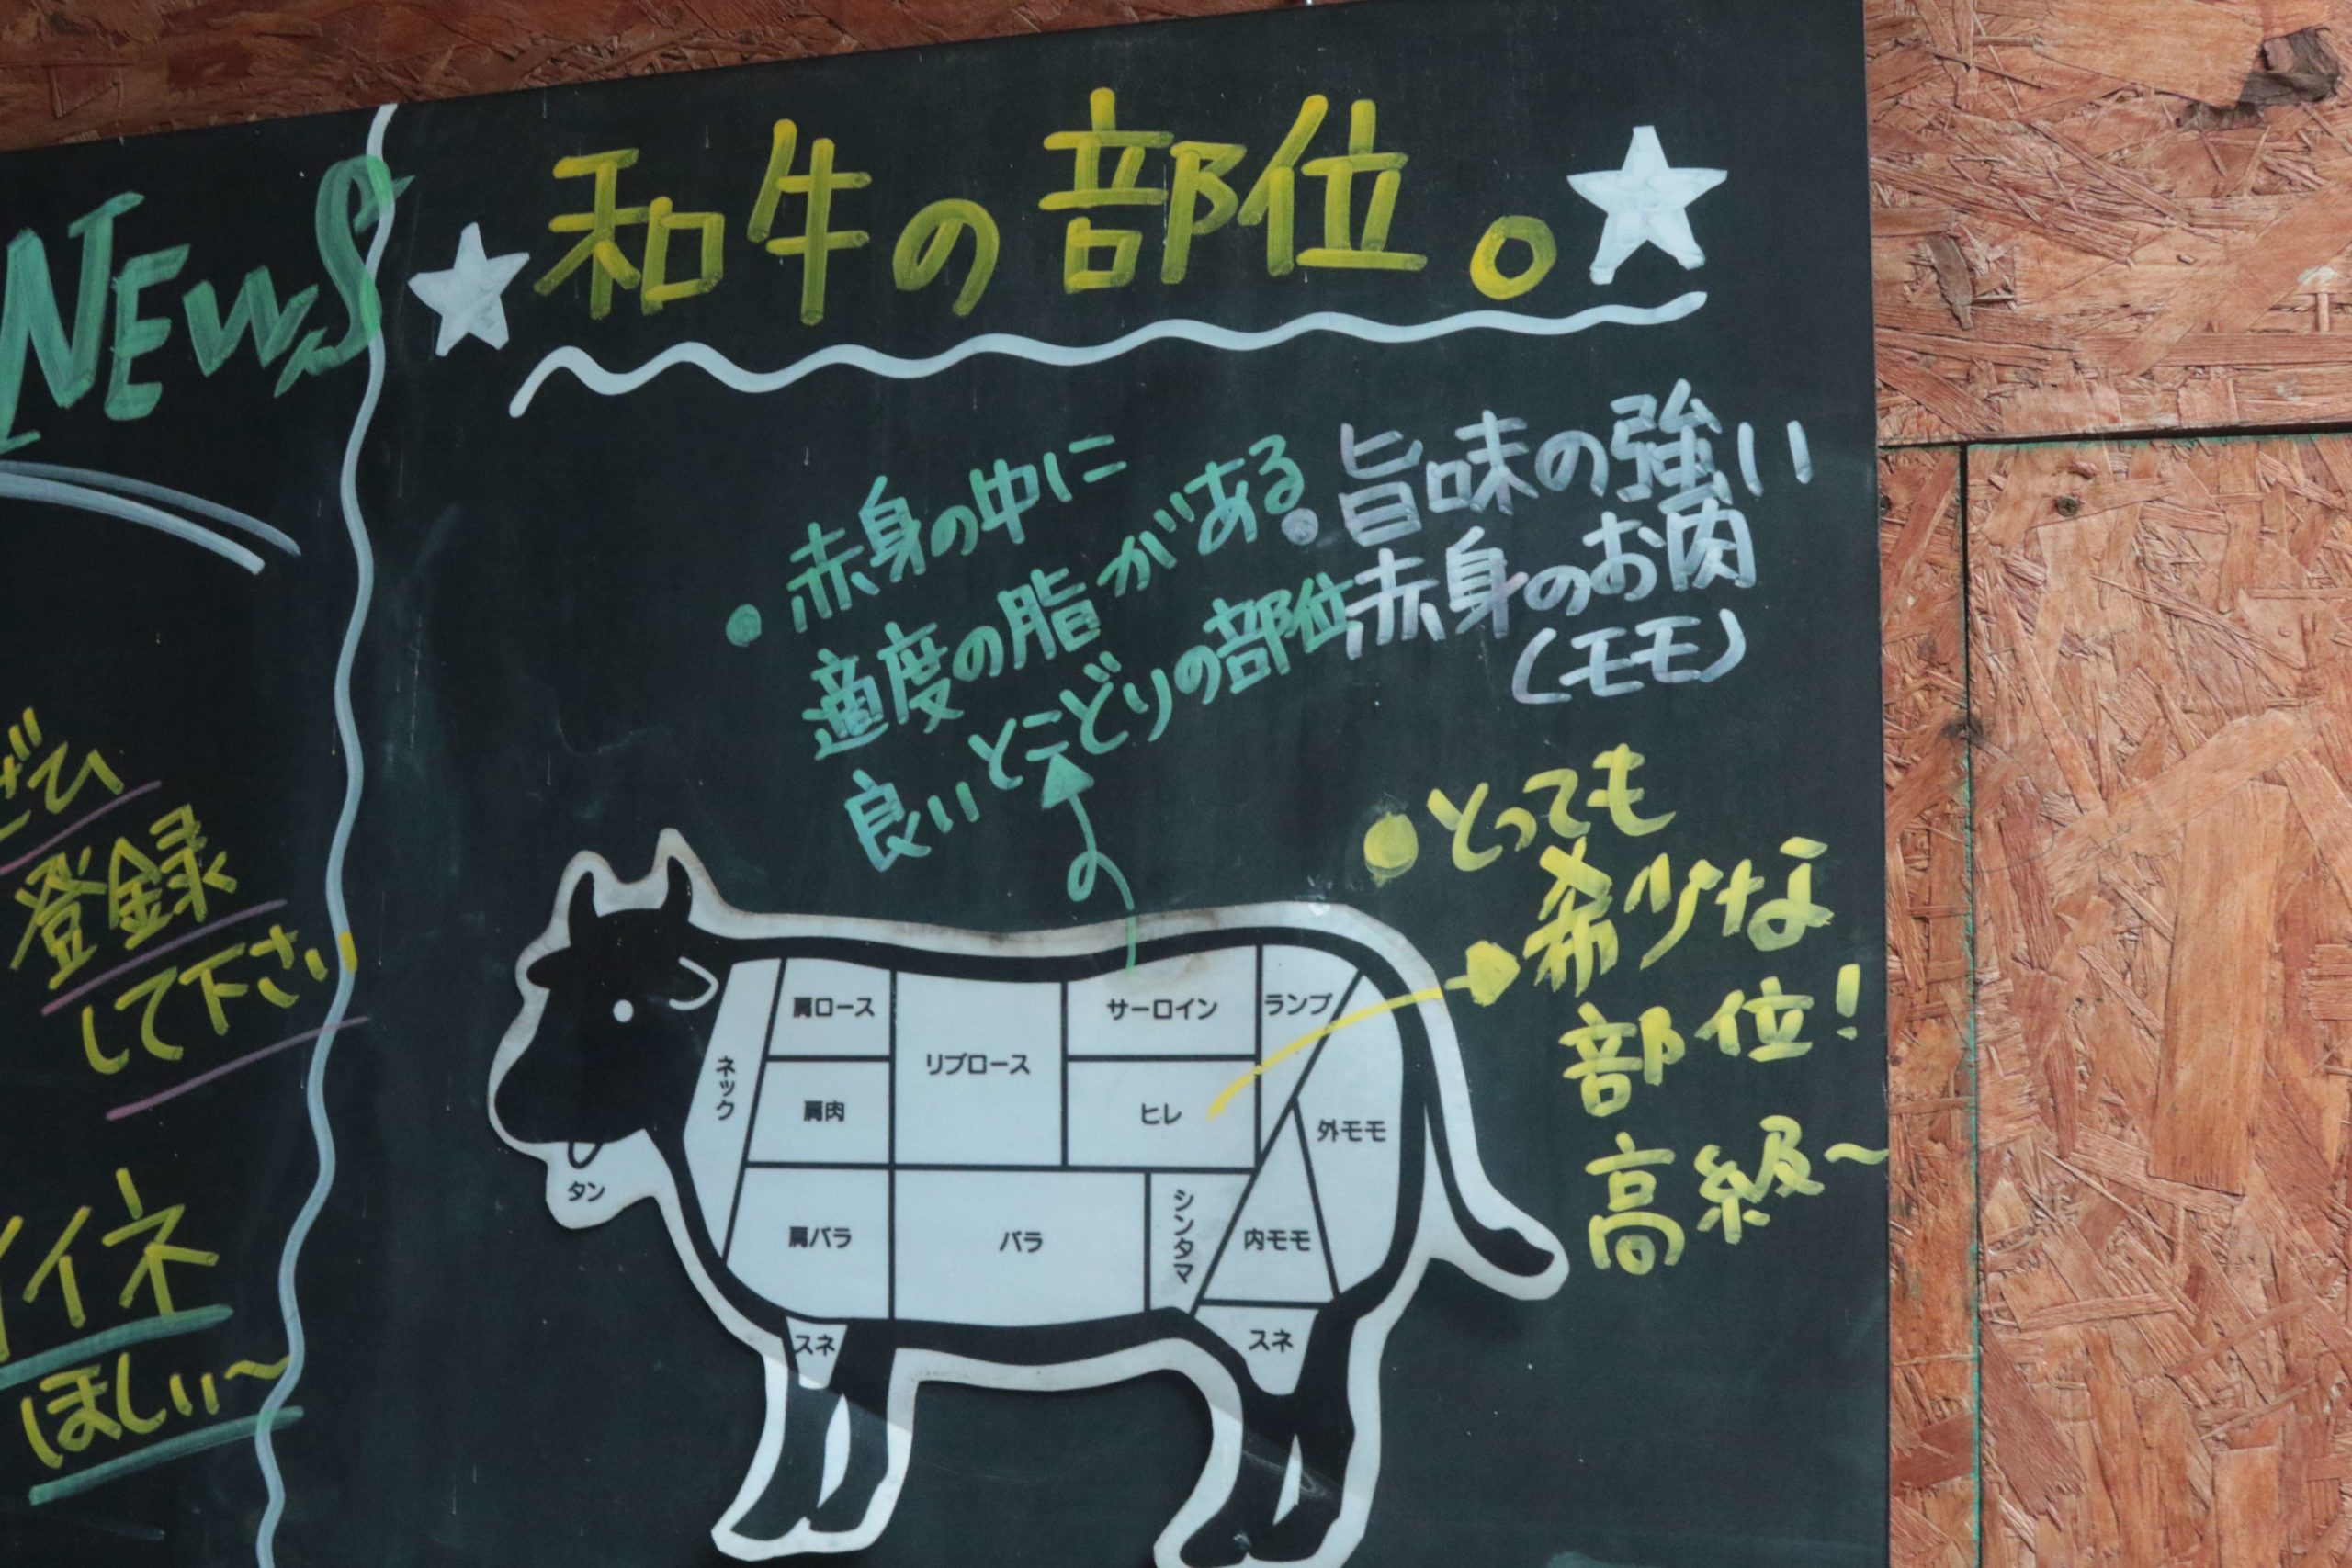 NEWS
ぜひ
登録
して下さい
イイネ
ほしい〜
和牛の部位。
赤身の中に
適度の脂がある
良いとこどりの部位
旨味の強い
赤身のお肉
(モモ)
とっても
希少な
部位!
高級〜
肩ロース
リブロース
サーロイン
ランプ
ネック
肩肉
ヒレ
外モモ
タン
肩バラ
バラ
シンタマ
内モモ
スネ
スネ